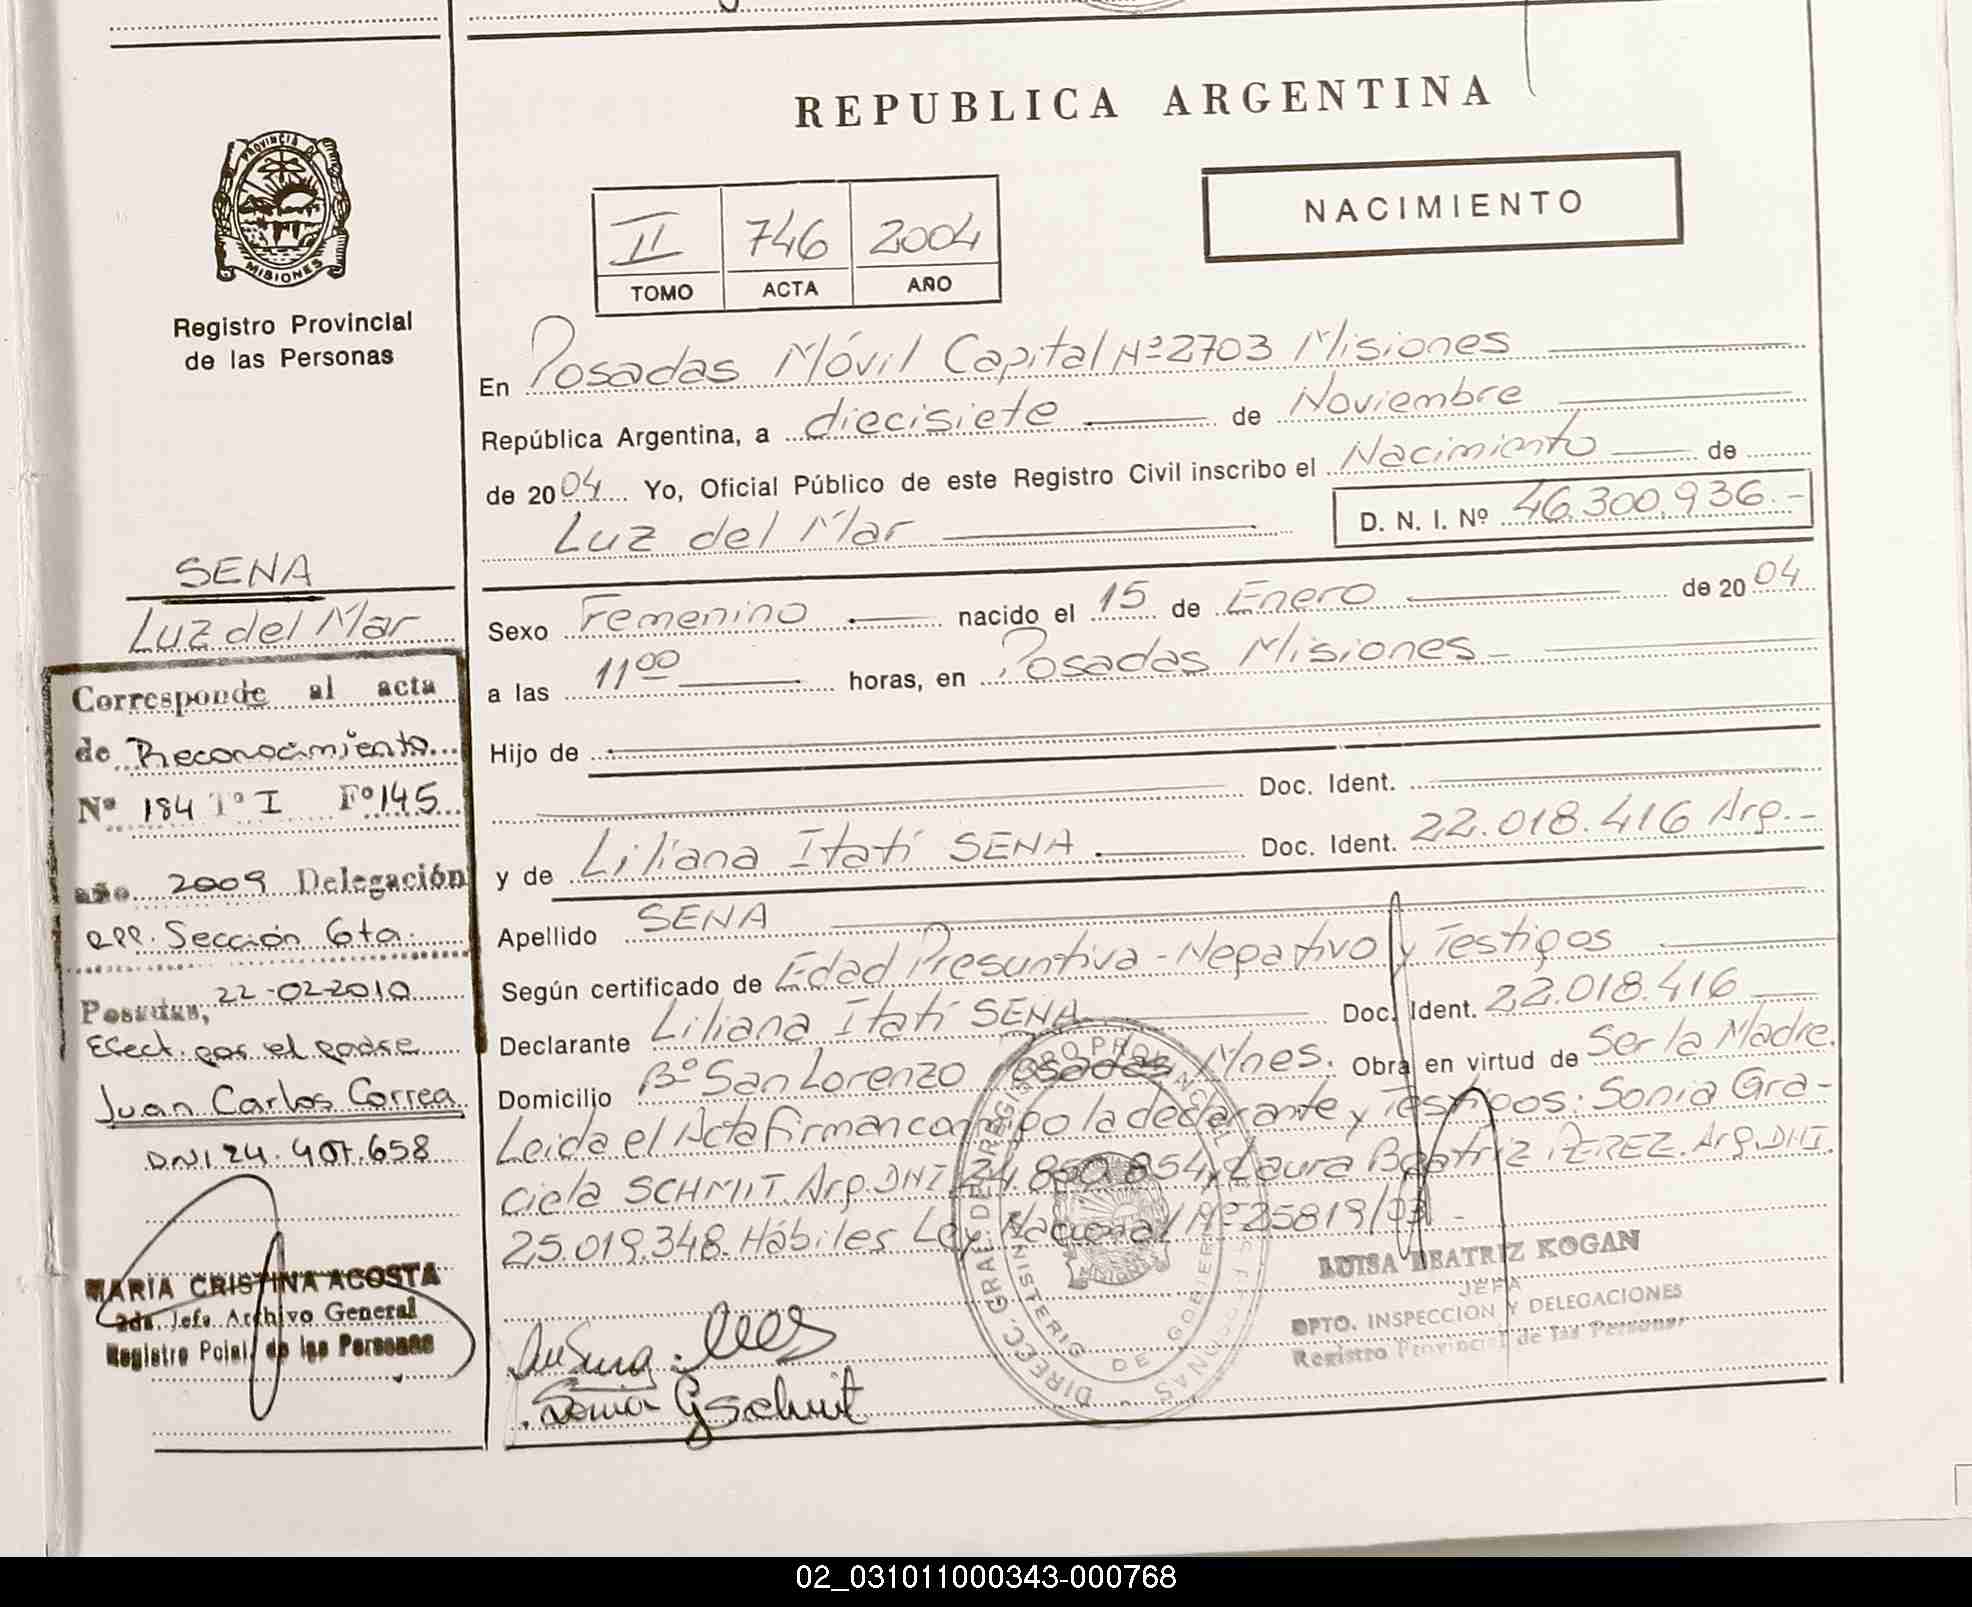 REPUBLICA ARGENTINA
PROVINCIA DE
MISIONES
Registro Provincial
de las Personas
NACIMIENTO
II 746 2004
TOMO ACTA AÑO
En Posadas Móvil Capital Nº 2703 Misiones
República Argentina, a diecisiete de Noviembre
de 2004 Yo, Oficial Público de este Registro Civil inscribo el Nacimiento de
Luz del Mar D. N. I. Nº 46.300.936.-
Sexo Femenino nacido el 15 de Enero de 2004
a las 11 00 horas, en Posadas Misiones
Hijo de
Doc. Ident.
y de Liliana Itatí SENA Doc. Ident. 22.018.416 Arg.-
Apellido SENA
Según certificado de Edad Presuntiva - Negativo y Testigos
Declarante Liliana Itatí SENA Doc. Ident. 22.018.416
Domicilio Bº San Lorenzo Posadas Mnes. Obra en virtud de Ser la Madre.
Leida el Acta firman conmigo la declarante y Testigos: Sonia Gra-
ciela SCHMIT Arg. DNI 24.850.854, Laura Beatriz PEREZ. Arg. DNI.
25.019.348. Hábiles Ley Nacional Nº 25819/03 -
LUISA BEATRIZ KOGAN
JEFA
DPTO. INSPECCION Y DELEGACIONES
Registro Provincial de las Personas
Sonia G schmit
MINISTERIO DE GOBIERNO
SENA
Luz del Mar
Corresponde al acta
de Reconocimiento
Nº 184 Tº I Fº 145
año 2009 Delegación
RPP. Sección 6ta.
Posadas, 22-02-2010
Efect. por el padre
Juan Carlos Correa
DNI 24.407.658
MARIA CRISTINA ACOSTA
2da. Jefe Archivo General
Registro Pcial. de las Personas
02_031011000343-000768